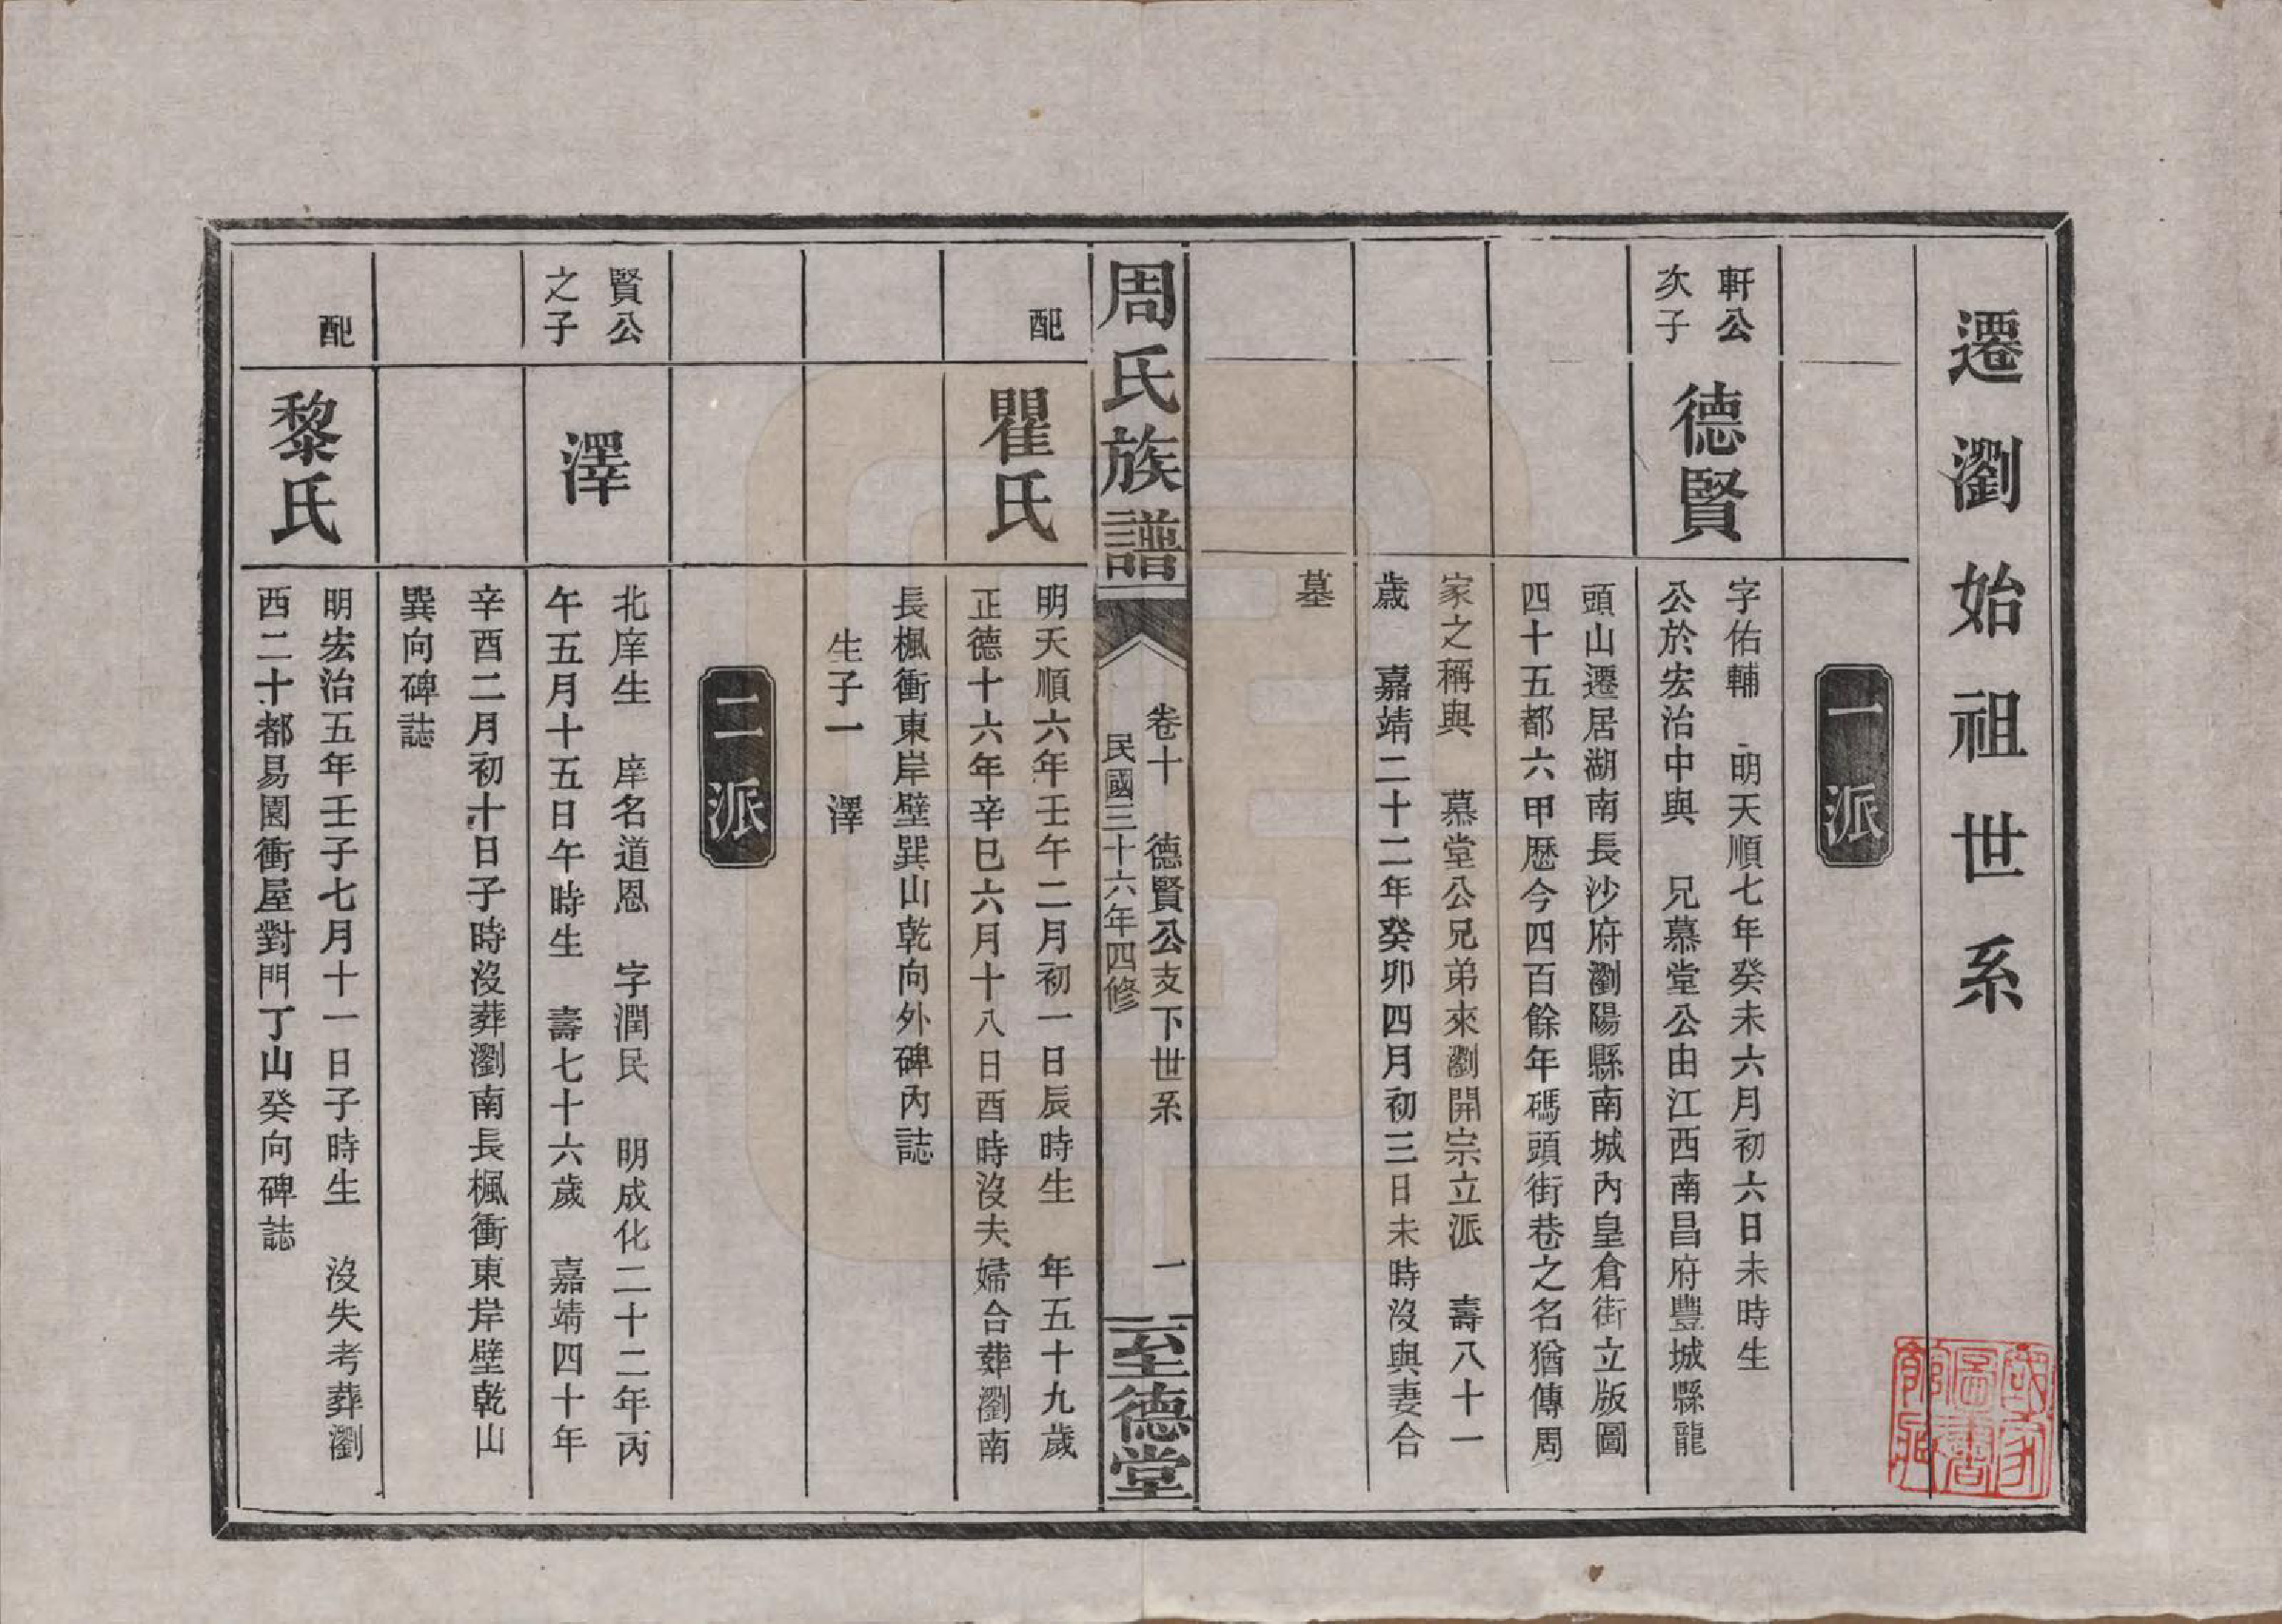 遷瀏始祖世系
一派
軒公
次子
德賢
字佑輔　明天順七年癸未六月初六日未時生
公於宏治中與　兄慕堂公由江西南昌府豐城縣龍
頭山遷居湖南長沙府瀏陽縣南城內皇倉街立版圖
四十五都六甲歷今四百餘年碼頭街巷之名猶傳周
家之稱與　慕堂公兄弟來瀏開宗立派　壽八十一
歲　嘉靖二十二年癸卯四月初三日未時沒與妻合
墓
周氏族譜
卷十　德賢公支下世系　一
民國三十六年四修
至德堂
配
瞿氏
明天順六年壬午二月初一日辰時生　年五十九歲
正德十六年辛巳六月十八日酉時沒夫婦合葬瀏南
長楓衝東岸壁巽山乾向外碑內誌
生子一　澤
二派
賢公
之子
澤
北庠生　庠名道恩　字潤民　明成化二十二年丙
午五月十五日午時生　壽七十六歲　嘉靖四十年
辛酉二月初十日子時沒葬瀏南長楓衝東岸壁乾山
巽向碑誌
配
黎氏
明宏治五年壬子七月十一日子時生　沒失考葬瀏
西二十都易園衝屋對門丁山癸向碑誌